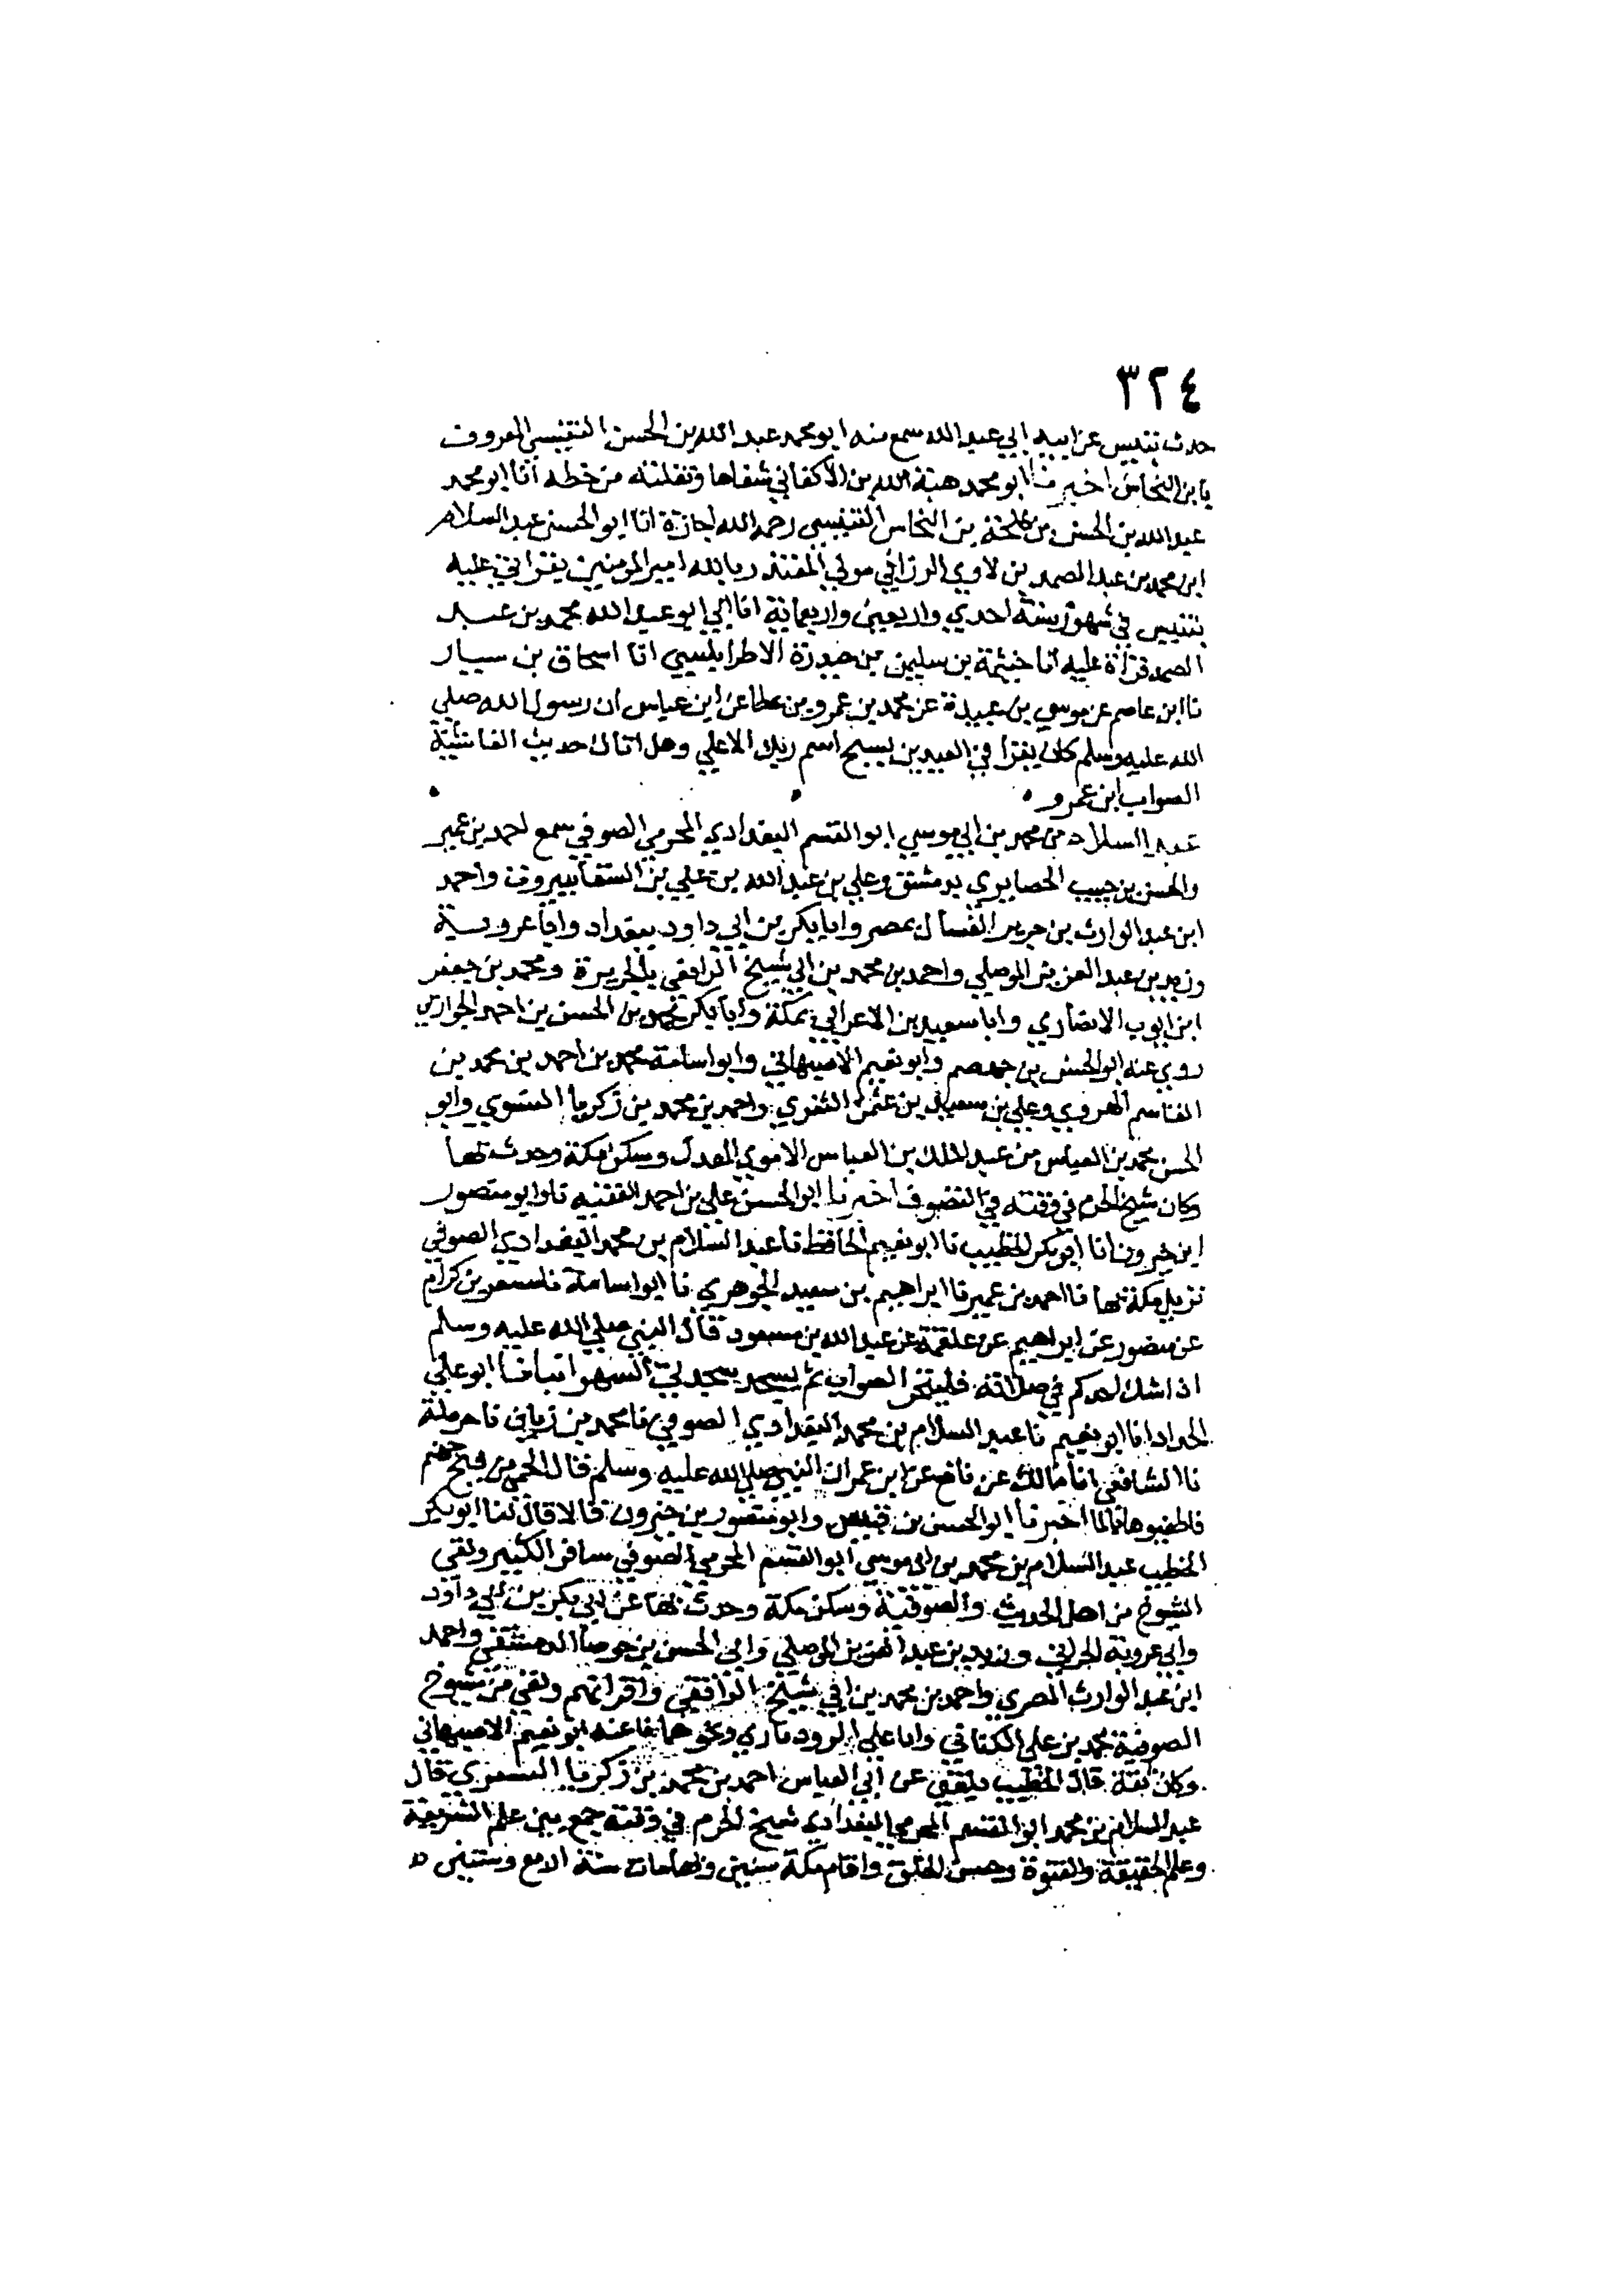 ٣٢٤
حدث بتنيس عن ابيه ابي عبد الله سمع منه ابو محمد عبد الله بن الحسن التنيسي المعروف
يا بن النحاس اخبرنا ابو محمد هبة الله بن الاكفاني شفاها ونقلته من خطه انا ابو محمد
عبد الله بن الحسن بن طلحة بن النحاس التنيسي رحمه الله اجازة انا ابو الحسن عبد السلام
ابن محمد بن عبد الصمد بن لاوي الرزافي مولي المقتدر بالله امير المومنين بقراتي عليه
بتنيس في شهور سنة احدي واربعين واربعماية انا ابي ابو عبد الله محمد بن عبد
الصمد قراة عليه انا خيثمة بن سليمن بن حيدرة الاطرابلسي انا اسحاق بن سيار
نا ابن عاصم عن موسي بن عبيدة عن محمد بن عمرو بن عطا عن ابن عباس ان رسول الله صلي
الله عليه وسلم كان يقرا في العيدين بسبح اسم ربك الاعلي وهل اتاك حديث الغاشية
السواب ابن عمرو
عبد السلام بن محمد بن ابي موسي ابو القسم البغدادي المخرمي الصوفي سمع احمد بن عمير
والحسن بن حبيب الحصايري بدمشق وعلي بن عبد الله بن علي بن السقا ببيروت واحمد
ابن عبد الوارث بن جرير الغسال بمصر وابا بكر بن ابي داود ببغداد وابا عروبة
وزيد بن عبد العزيز الموصلي واحمد بن محمد بن ابي شيخ الرافقي بالجزيرة ومحمد بن جعفر
ابن ايوب الانصاري وابا سعيد بن الاعرابي بمكة وابا بكر محمد بن الحسن بن احمد الجواربي
روي عنه ابو الحسن بن جهضم وابو نعيم الاصبهاني وابو اسامة محمد بن احمد بن محمد بن
القاسم الهروي وعلي بن سعيد بن عثمن الثغري واحمد بن محمد بن زكريا النسوي وابو
الحسن محمد بن العباس بن عبد الملك بن العباس الاموي المعدل وسكن مكة وحدث بها
وكان شيخ الحرم في وقته في التصوف اخبرنا ابو الحسن علي بن احمد الفقيه نا وابو منصور
ابن خيرون انا ابو بكر الخطيب نا ابو نعيم الحافظ نا عبد السلام بن محمد البغدادي الصوفي
نزيل مكة بها نا احمد بن عمير نا ابراهيم بن سعيد الجوهري نا ابو اسامة نا مسعر بن كدام
عن منصور عن ابراهيم عن علقمة عن عبد الله بن مسعود قال النبي صلي الله عليه وسلم
اذا شك احدكم في صلاته فليتحر الصواب ثم يسجد سجدتي السهو انبانا ابو علي
الحداد انا ابو نعيم نا عبد السلام بن محمد البغدادي الصوفي نا محمد بن زبان نا حرملة
نا الشافعي انا مالك عن نافع عن ابن عمر ان النبي صلي الله عليه وسلم قال الحمي من فيح جهنم
فاطفيوها بالما اخبرنا ابو الحسن بن قبيس وابو منصور بن خيرون قالا قال لنا ابو بكر
الخطيب عبد السلام بن محمد بن ابي موسي ابو القسم المخرمي الصوفي سافر الكثير ولقي
الشيوخ من اهل الحديث والصوفية وسكن مكة وحدث بها عن ابي بكر بن ابي داود
وابي عروبة الحراني وزيد بن عبد العزيز الموصلي وابي الحسن بن جوصا الدمشقي واحمد
ابن عبد الوارث المصري واحمد بن محمد بن ابي شيخ الرافقي واقرانهم ولقي من شيوخ
الصوفية محمد بن علي الكتاني وابا علي الروذباري ونحوهما نا عنه ابو نعيم الاصبهاني
وكان ثقة قال الخطيب بلغني عن ابي العباس احمد بن محمد بن زكريا النسوي قال
عبد السلام بن محمد ابو القسم المخرمي البغدادي شيخ الحرم في وقته جمع بين علم الشريعة
وعلم الحقيقة والفتوة وحسن الخلق واقام بمكة سنين وبها مات سنة اربع وستين